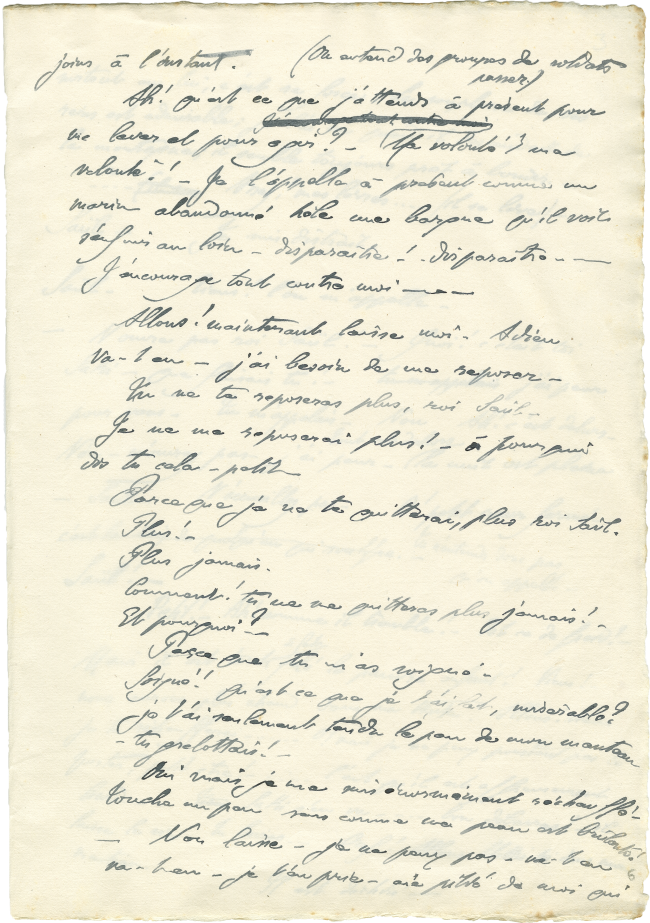 joins à l'instant. (On entend des groupes de soldats
passer.)
Ah! qu'est ce que j'attends à présent pour
me lever et pour agir? - Ma volonté! ma
volonté! - Je l'appelle à présent comme un
marin abandonné hèle une barque qu'il voit
s'enfuir au loin - disparaître! - disparaître - -
J'encourage tout contre moi - - -
Allons! maintenant laisse moi - Adieu
va-t-en - j'ai besoin de me reposer -
Tu ne te reposeras plus, roi Saül -
Je ne me reposerai plus! - ô pourquoi
dis tu cela - petit
Parce que je ne te quitterai, plus roi Saül.
Plus! -
Plus jamais.
Comment! tu ne me quitteras plus jamais! -
Et pourquoi? -
Parce que tu m'as soigné -
Soigné! qu'est ce que je t'ai fait, misérable?
je t'ai seulement tendu le pan de mon manteau
- tu grelottais! -
Oui mais je me suis énormément réchauffé -
touche un peu sens comme ma peau est brûlante!
- Non laisse - je ne peux pas - va-t-en
va-t-en - je t'en prie - aie pitié de moi qui
6